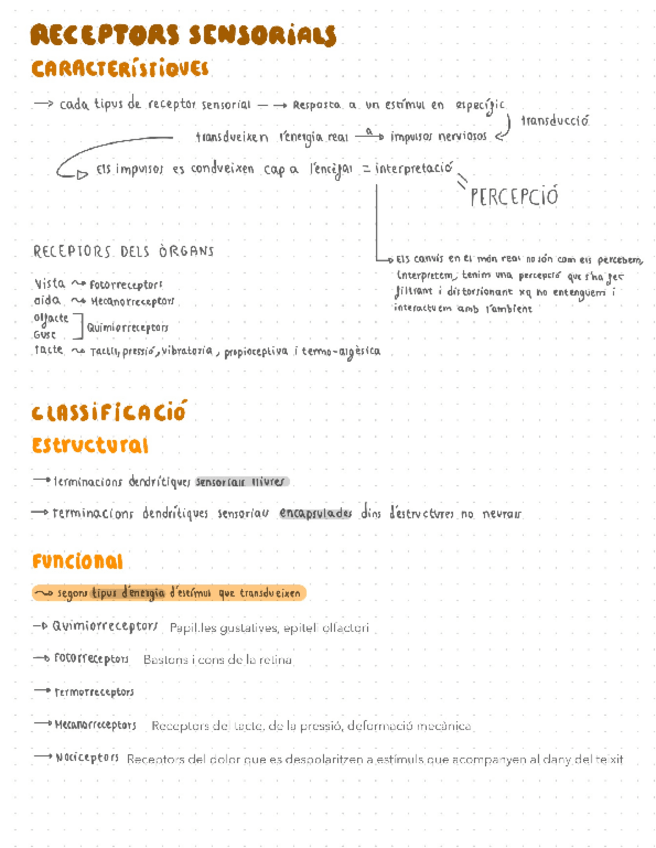 RECEPTORS SENSORIALS
CARACTERÍSTIQUES
→ cada tipus de receptor sensorial — → Resposta a un estímul en específic
transducció
transdueixen l'energia real a→ impulsos nerviosos
Els impulsos es condueixen cap a l'encèfal = interpretació
PERCEPCIÓ
RECEPTORS DELS ÒRGANS
Els canvis en el món real no són com els percebem,
interpretem, tenim una percepció que s'ha fet
filtrant i distorsionant xq no entenguem i
interactuem amb l'ambient
Vista ~> Fotorreceptors
oïda ~> Mecanorreceptors
Olfacte
Quimiorreceptors
Gust
Tacte ~> Tàctils, pressió, vibratoria, propioceptiva i termo-algèsica
CLASSIFICACIÓ
Estructural
→ terminacions dendrítiques sensorials lliures
→ terminacions dendrítiques sensorials encapsulades dins d'estructures no neurals
Funcional
~> segons tipus d'energia d'estímul que transdueixen
→ Quimiorreceptors Papil.les gustatives, epiteli olfactori
→ Fotorreceptors Bastons i cons de la retina
→ Termorreceptors
→ Mecanorreceptors Receptors del tacte, de la pressió, deformació mecànica
→ Nociceptors Receptors del dolor que es despolaritzen a estímuls que acompanyen al dany del teixit